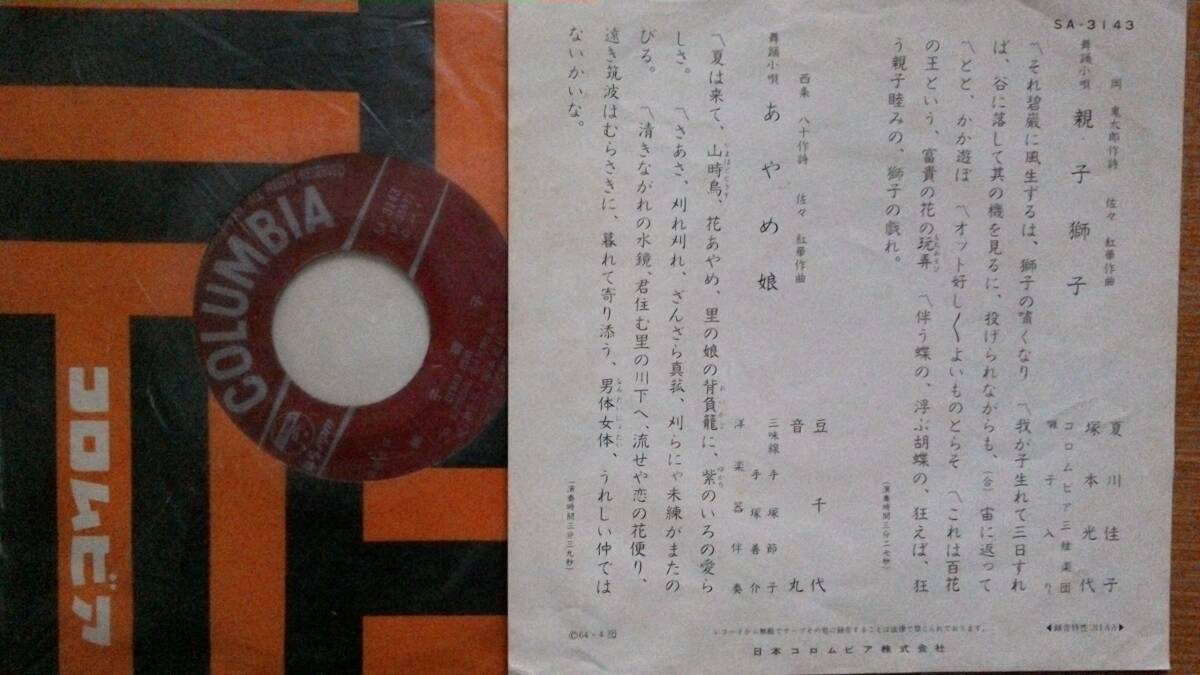 SA-3143
岡 鬼太郎作詩 佐々 紅華作曲
舞踊小唄 親子獅子
夏川佳子
塚本光代
コロムビア三絃楽団
囃子入り
〽それ碧巌に風生ずるは、獅子の嘯くなり 〽我が子生れて三日すれ
ば、谷に落して其の機を見るに、投げられながらも、(合)宙に返って
〽とと、かか遊ぼ 〽オット好し〱よいものとらそ 〽これは百花
の王という、富貴の花の玩弄 〽伴う蝶の、浮ぶ胡蝶の、狂えば、狂
う親子睦みの、獅子の戯れ。
(演奏時間三分二七秒)
西条 八十作詩 佐々 紅華作曲
舞踊小唄 あやめ娘
豆千代
音丸
三味線 手塚節子
手塚善介
洋楽器伴奏
〽夏は来て、山時鳥、花あやめ、里の娘の背負籠に、紫のいろの愛ら
しさ。 〽さあさ、刈れ刈れ、ざんざら真菰、刈らにゃ未練がまたの
びる。 〽清きながれの水鏡、君住む里の川下へ、流せや恋の花便り、
遠き筑波はむらさきに、暮れて寄り添う、男体女体、うれしい仲では
ないかいな。
(演奏時間三分三九秒)
◀録音特性:RIAA▶
レコードから無断でテープその他に録音することは法律で禁じられております。
Ⓒ64・4
日本コロムビア株式会社
COLUMBIA
コロムビア